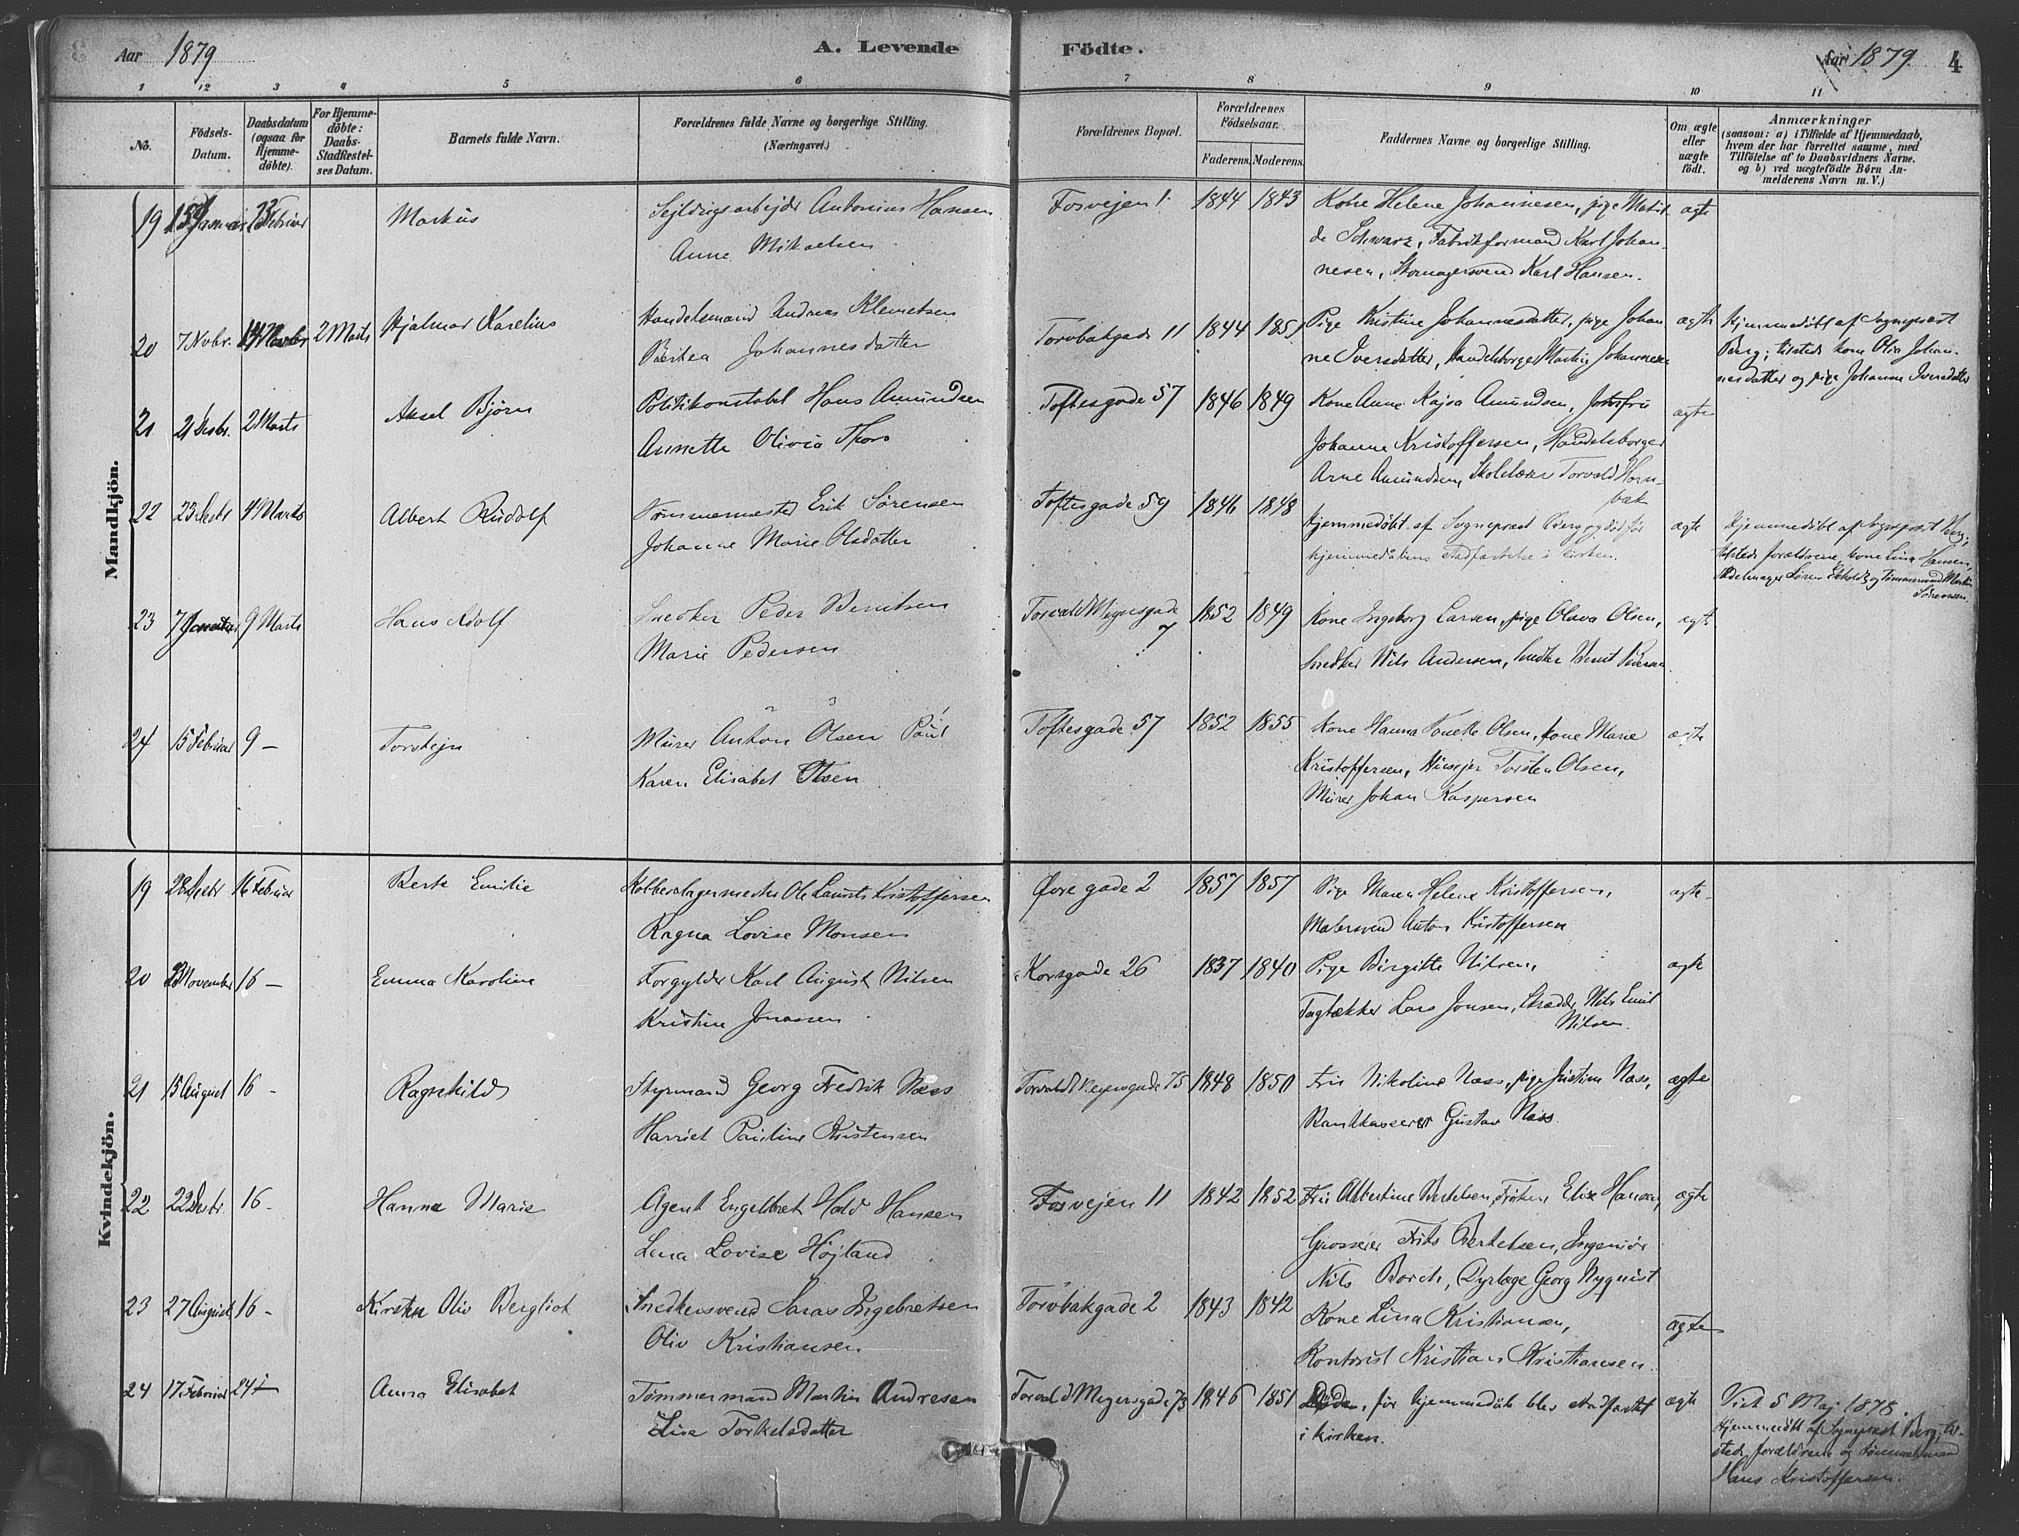 Aar 1879
A. Levende
Födte.
Aar 1879. 4
1 12 3 4 5 6 7 8 9 10 11
No.
Födsels-Datum.
Daabsdatum (ogsaa för Hjemme-döbte).
For Hjemme-döbte: Daabs-Stadfæstel-ses Datum.
Barnets fulde Navn.
Forældrenes fulde Navne og borgerlige Stilling. (Næringsvei.)
Forældrenes Bopæl.
Forældrenes Födselsaar.
Faderens. Moderens.
Faddernes Navne og borgerlige Stilling.
Om ægte eller uægte födt.
Anmærkninger
(saasom: a) i Tilfælde af Hjemmedaab,
hvem der har forrettet samme, med
Tilföielse af to Daabsvidners Navne.
og b) ved uægtefödte Börn An-
melderens Navn m. V.)
Mandkjön.
19 Januar Februar Markus
Antonius Hansen
Anne Mikaelsen
Fosvejen 1. 1844 1843
Kone Helene Johannesen, pige Matil-
de Schwarz, Fabrikformand Karl Johan-
nesen, Karl Hansen.
ægte
20 7 Novbr. 2 Marts Hjalmar Karelius
Handelsmand Andreas Klemetsen
Johannesdatter
Torvbakgade 11 1844 1851
Pige Kristine Johannesdatter, pige Johan
ne Iversdatter, Handelsborger Martin Johannesen
ægte
Hjemmedöbt af Sogneprest
Berg; tilstede kone Olia Johan-
nesdatter og pige Johanne Iversdatter
21 21 Desbr. 2 Marts Aksel Bjørn
Politikonstabel Hans Amundsen
Annette Olivia Thors
Toftesgade 57 1846 1849
Kone Anne Kajsa Amundsen,
Johanne Kristoffersen, Handelsborger
Arne Amundsen, Skolelærer Torvald Horn-
bæk
ægte
22 23 Desbr 4 Marts Albert Rudolf
Tømmermester Erik Sørensen
Johanne Marie Olsdatter
Toftesgade 59 1846 1848
Hjemmedøbt af Sogneprest Berg og död før
hjemmedaabens Stadfæstelse i kirken.
ægte
Hjemmedöbt af Sogneprest Berg;
tilstede forældrene, kone Lina Hansen,
Sadelmager Søren og Tømmermand Martin
Sørensen.
23 7 Januar 9 Marts Hans Adolf
Snedker Peder Berntsen
Marie Pedersen
Torvald Meyersgade
7 1852 1849
Kone Ingeborg Larsen, pige Olava Olsen,
Snedker Nils Andersen, Snedker Bernt Pedersen
ægte
24 15 Februar 9 — Torstejn
Murer Anton Olsen Paul
Karen Elisabet Olsen
Toftesgade 57 1852 1855
Kone Hanna Olsen, kone Marie
Kristoffersen, Husejer Torsten Olsen,
Murer Johan Kaspersen
ægte
Kvindekjön.
19 28 Desbr 16 Februar Berte Emilie
Ole Laurits Kristoffersen
Ragna Lovise Monsen
Øvregade 2 1857 1857
Pige Maren Helene Kristoffersen,
Malersvend Anton Kristoffersen
ægte
20 23 November 16 — Emma Karoline
Forgylder Karl August Nilsen
Kristine Jonassen
Korsgade 26 1837 1840
Pige Birgitte Nilsen,
Tagtækker Lars Jonsen, Skrædder Nils Emil
Nilsen.
ægte
21 15 August 16 - Ragnhild
Styrmand Georg Fredrik Næss
Harriet Pauline Kristensen
Torvald Meyersgade 75 1848 1850
Fru Nikoline Næss, pige Justine Næss,
Bankkasserer Gustav Næss
ægte
22 22 Desbr. 16 - Hanna Marie
Agent Engelbret Hansen
Lena Lovise Højland
Fosvejen 11 1842 1852
Fru Albertine Bertelsen, Frøken Elise Hansen,
Grosserer Frits Bertelsen, Ingeniør
Nils Borch, Dyrlæge Georg Nyquist
ægte
23 27 August 16 - Kirsten Oliv Bergliot
Snedkersvend Saras Ingebretsen
Oliv Kristiansen
Torvbakgade 2 1843 1842
Kone Lina Kristiansen,
Kontorist Kristian Kristiansen.
ægte
24 17 Februar 24 — Anna Elisabet
Tømmermand Martin Andresen
Lise Torkelsdatter
Torvald Meyersgade 73 1846 1851
Døde, før hjemmedaab blev stadfæstet
i kirken.
ægte
Viet 5 Maj 1878.
Hjemmedöbt af Sogneprest Berg; til-
stede forældrene og tømmermand
Hans Kristoffersen.